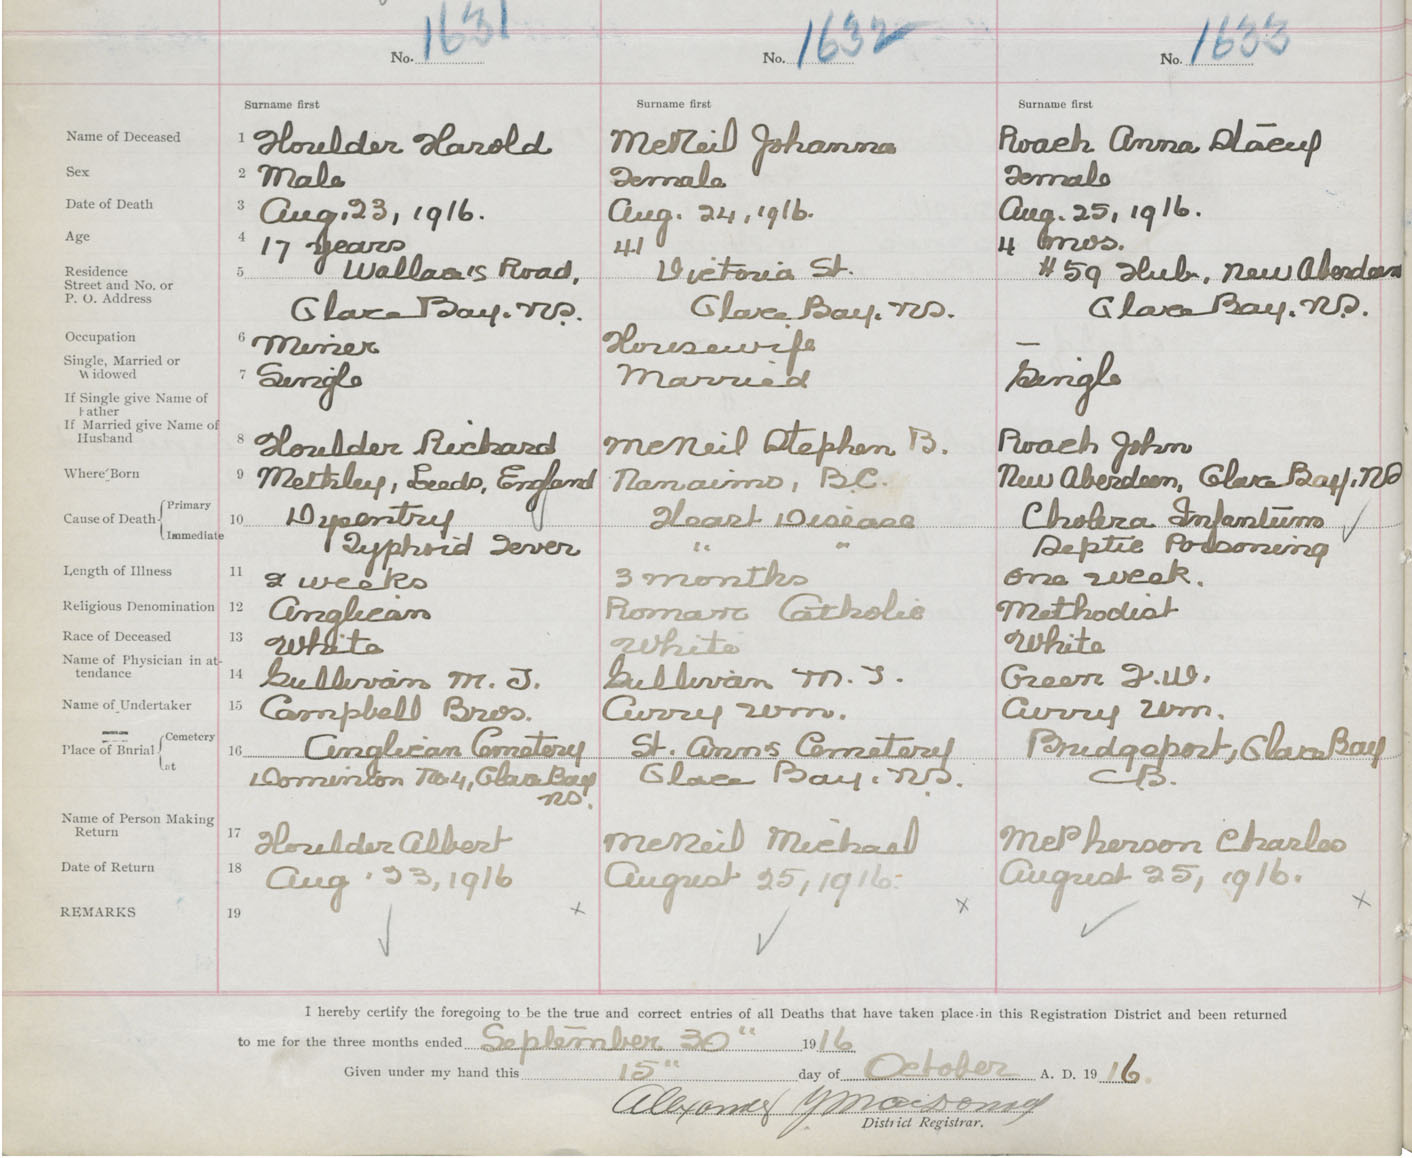 No. 1631 No. 1632 No. 1633
Surname first Surname first Surname first
Name of Deceased 1 Houlder Harold McNeil Johanna Roach Anna Stacey
Sex 2 Male Female Female
Date of Death 3 Aug. 23, 1916. Aug. 24, 1916. Aug. 25, 1916.
Age 4 17 years 41 4 mos.
Residence 5 Wallace's Road, Victoria St. #59 Hub, New Aberdeen
Street and No. or
P. O. Address Glace Bay. N.S. Glace Bay. N.S. Glace Bay. N.S.
Occupation 6 Miner Housewife —
Single, Married or
Widowed 7 Single Married Single
If Single give Name of
Father
If Married give Name of
Husband 8 Houlder Richard McNeil Stephen B. Roach John
Where Born 9 Methley, Leeds, England Nanaimo, B.C. New Aberdeen, Glace Bay. N.S
Cause of Death Primary 10 Dysentry Heart Disease Cholera Infantum
Immediate Typhoid Fever " " Septic Poisoning
Length of Illness 11 2 weeks 3 months one week.
Religious Denomination 12 Anglican Roman Catholic Methodist
Race of Deceased 13 White White White
Name of Physician in at-
tendance 14 Sullivan M. J. Sullivan M. J. Green F. W.
Name of Undertaker 15 Campbell Bros. Curry Wm. Curry Wm.
Place of Burial Cemetery 16 Anglican Cemetery St. Ann's Cemetery Bridgeport, Glace Bay
at Dominion No 4, Glace Bay Glace Bay. N.S. C.B.
N.S.
Name of Person Making
Return 17 Houlder Albert McNeil Michael McPherson Charles
Date of Return 18 Aug. 23, 1916 August 25, 1916. August 25, 1916.
REMARKS 19
I hereby certify the foregoing to be the true and correct entries of all Deaths that have taken place in this Registration District and been returned
to me for the three months ended September 30" 1916
Given under my hand this 15" day of October A. D. 1916.
Alexander
District Registrar.